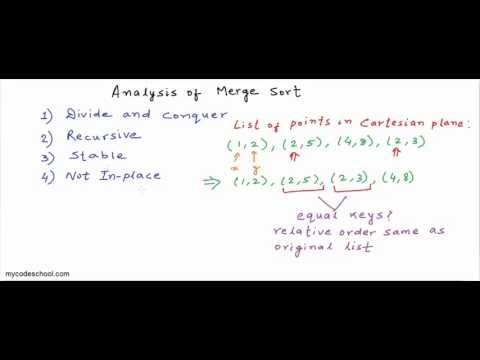 Analysis of Merge Sort
1) Divide and Conquer
2) Recursive
3) Stable
4) Not In-place
List of points in Cartesian plane:
(1,2), (2,5), (4,8), (2,3)
x y
⇒ (1,2), (2,5), (2,3), (4,8)
equal keys?
relative order same as
original list
mycodeschool.com